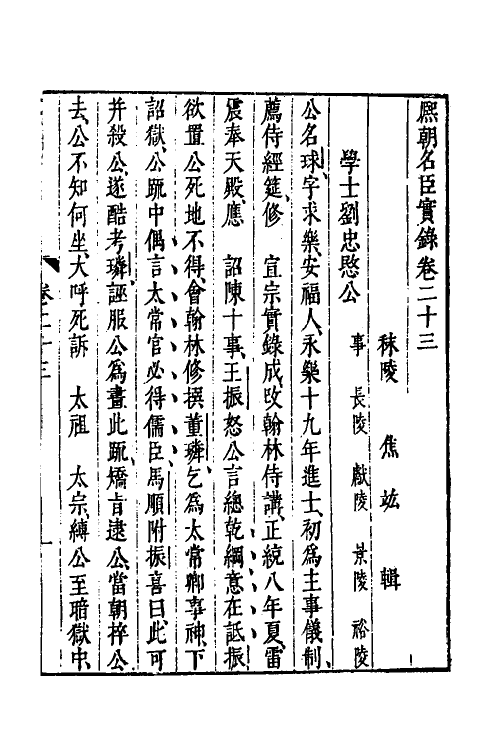 熈朝名臣實錄卷二十三
秣陵　焦竑　輯
學士劉忠愍公　事　長陵　獻陵　景陵　裕陵
公名球、字求樂、安福人、永樂十九年進士、初爲主事儀制、
薦侍經筵、修　宣宗實錄成、攺翰林侍講、正統八年夏、雷
震奉天殿、應　詔陳十事、王振怒公言緫乾綱意在詆振
欲置公死地不得、會翰林修撰董璘、乞爲太常卿事神、下
詔獄、公䟽中偶言太常官必得儒臣、馬順附振喜曰、此可
并殺公、遂酷考璘、誣服公爲晝此䟽、矯㫖逮公、當朝捽公
去、公不知何坐、大呼死訴　太祖　太宗、縛公至暗獄中、
卷二十三　一